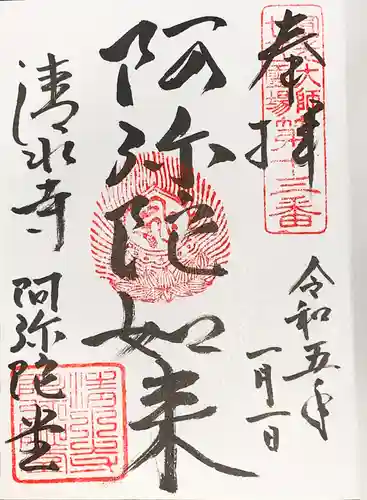 奉拝
大師
霊場
第十三番
令和五年
一月一日
阿弥陀如来
清水寺
阿弥陀堂